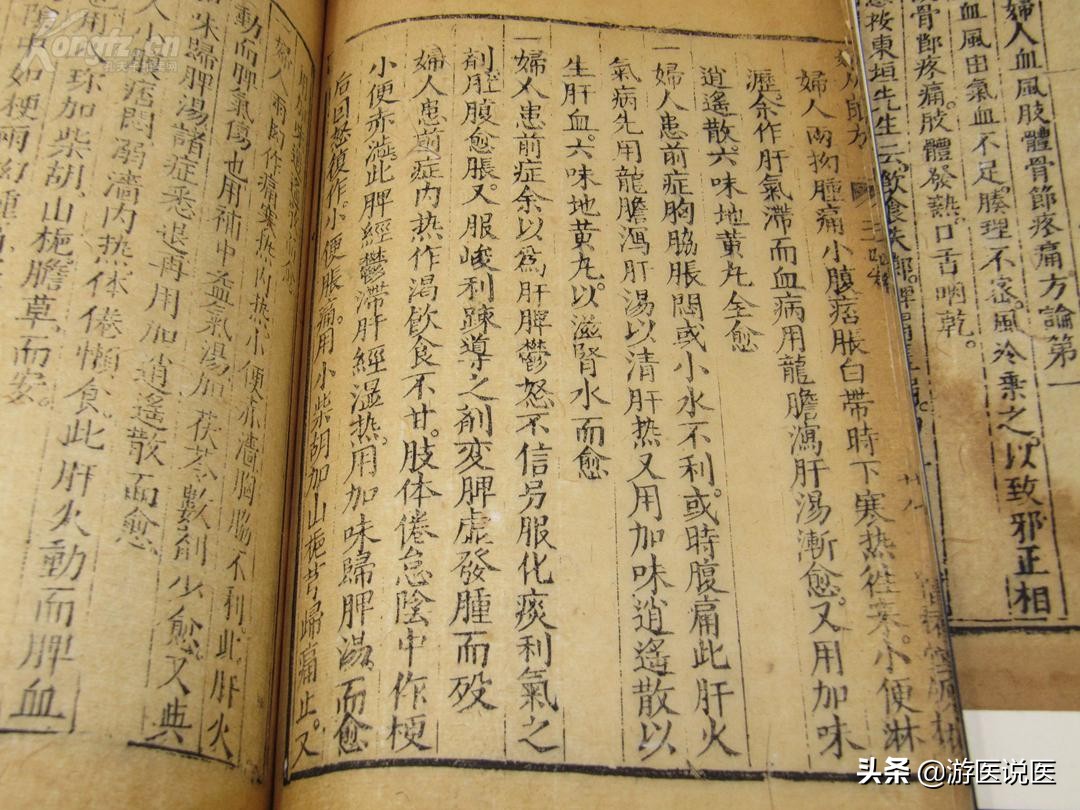 婦人血風肢體骨節疼痛方論第一
血風由氣血不足腠理不密。風冷乘之。以致邪正相
骨節疼痛。肢體發熱。口舌咽乾。
按東垣先生云飲食失節。脾胃
婦人兩拗腫痛小腹痞脹白帶時下寒热往来。小便淋
瀝余作肝氣滯而血病用龍膽瀉肝湯漸愈。又用加味
逍遙散。六味地黃丸全愈
一婦人患前症胸脇脹悶或小水不利。或時腹痛此肝火
氣病先用龍膽瀉肝湯以清肝热又用加味逍遙散以
生肝血。六味地黃丸。以滋腎水而愈
一婦人患前症余以爲肝脾鬱怒不信另服化痰利氣之
剤。腹愈脹。又服峻利踈導之剤变脾虛發腫而殁
婦人患前症内热作渴飲食不甘。肢体倦怠陰中作梗
小便赤澁。此脾經鬱滯肝經湿热。用加味歸脾湯。而愈
后因怒復作。小便脹痛。用小柴胡加山梔芎歸痛止。又
婦人兩拗作痛寒热内热小便赤濇胸脇不利。此肝火
動而脾氣傷也用補中益氣湯加茯苓數剤少愈又與
味歸脾湯諸症悉退再用加逍遙散而愈
小痞悶弱濇内热体倦懶食。此肝火動而脾血
珎加柴胡山梔膽草而安。
陰中如梗兩拗腫
Kongfz.cn
头条 @游医说医